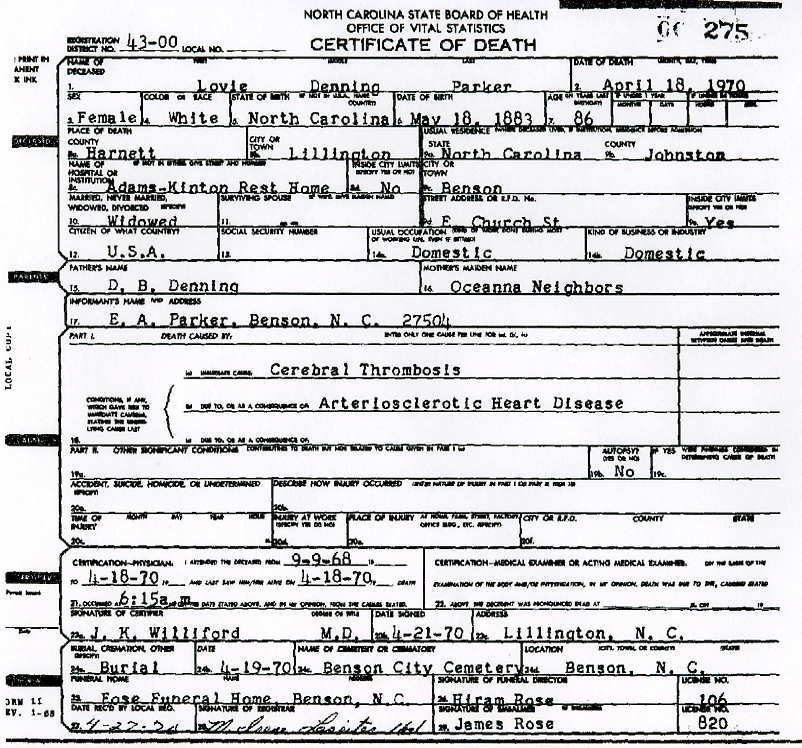 NORTH CAROLINA STATE BOARD OF HEALTH
OFFICE OF VITAL STATISTICS
275
CERTIFICATE OF DEATH
REGISTRATION DISTRICT NO. 43-00 LOCAL NO.
NAME OF DECEASED FIRST MIDDLE LAST DATE OF DEATH
1. Lovie Denning Parker 2. April 18, 1970
SEX COLOR OR RACE STATE OF BIRTH DATE OF BIRTH AGE
3. Female 4. White 5. North Carolina 6. May 18, 1883 7. 86
PLACE OF DEATH USUAL RESIDENCE
COUNTY CITY OR TOWN STATE COUNTY
8a. Harnett 8b. Lillington 9a. North Carolina 9b. Johnston
NAME OF HOSPITAL OR INSTITUTION INSIDE CITY LIMITS CITY OR TOWN
8c. Adams-Kinton Rest Home 8d. No 9c. Benson
MARRIED, NEVER MARRIED, WIDOWED, DIVORCED SURVIVING SPOUSE STREET ADDRESS OR R.F.D. No. INSIDE CITY LIMITS
10. Widowed 11. 9d. E. Church St. 9e. Yes
CITIZEN OF WHAT COUNTRY? SOCIAL SECURITY NUMBER USUAL OCCUPATION KIND OF BUSINESS OR INDUSTRY
12. U.S.A. 13. 14a. Domestic 14b. Domestic
FATHER'S NAME MOTHER'S MAIDEN NAME
15. D. B. Denning 16. Oceanna Neighbors
INFORMANT'S NAME AND ADDRESS
17. E. A. Parker, Benson, N. C. 27504
PART I. DEATH CAUSED BY: ENTER ONLY ONE CAUSE PER LINE
(a) IMMEDIATE CAUSE: Cerebral Thrombosis
(b) DUE TO, OR AS A CONSEQUENCE OF: Arteriosclerotic Heart Disease
CONDITIONS, IF ANY, WHICH GAVE RISE TO IMMEDIATE CAUSE, STATING THE UNDERLYING CAUSE LAST
18. DUE TO, OR AS A CONSEQUENCE OF:
PART II. OTHER SIGNIFICANT CONDITIONS AUTOPSY?
19a. 19b. No 19c.
ACCIDENT, SUICIDE, HOMICIDE, OR UNDETERMINED DESCRIBE HOW INJURY OCCURRED
20a. 20b.
TIME OF INJURY MONTH DAY YEAR HOUR INJURY AT WORK PLACE OF INJURY CITY OR R.F.D. COUNTY STATE
20c. 20d. 20e. 20f.
CERTIFICATION—PHYSICIAN: I ATTENDED THE DECEASED FROM 9-9-68 CERTIFICATION—MEDICAL EXAMINER OR ACTING MEDICAL EXAMINER:
TO 4-18-70 AND LAST SAW HIM/HER ALIVE ON 4-18-70, DEATH
21. OCCURRED AT 6:15a.m 22.
SIGNATURE OF CERTIFIER DATE SIGNED ADDRESS
23a. J. K. Williford M.D. 23b. 4-21-70 23c. Lillington, N. C.
BURIAL, CREMATION, OTHER DATE NAME OF CEMETERY OR CREMATORY LOCATION
24a. Burial 24b. 4-19-70 24c. Benson City Cemetery 24d. Benson, N. C.
FUNERAL HOME NAME ADDRESS SIGNATURE OF FUNERAL DIRECTOR LICENSE NO.
25. Rose Funeral Home, Benson, N.C. 26. Hiram Rose 106
DATE REC'D BY LOCAL REG. SIGNATURE OF REGISTRAR SIGNATURE OF EMBALMER LICENSE NO.
27. 4-27-70 28. 29. James Rose 820
LOCAL COPY
REV. 1-68